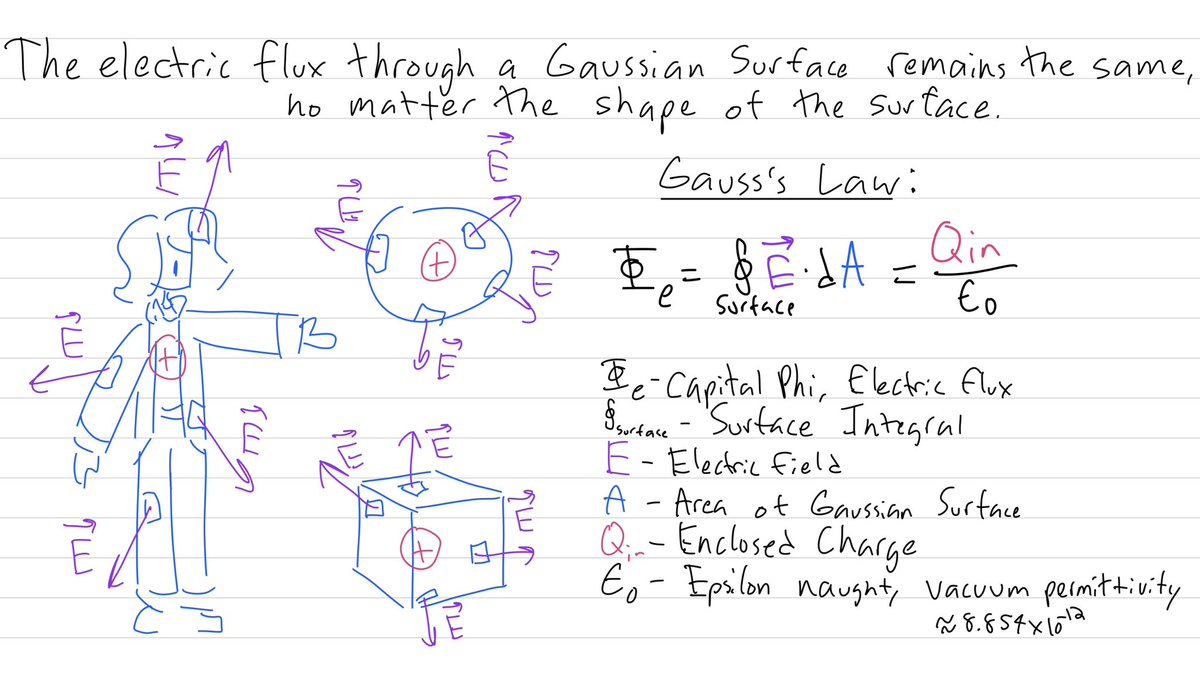 The electric flux through a Gaussian Surface remains the same,
no matter the shape of the surface.
E
E
E
E
E
E
E
E
E
E
E
E
+
+
+
Gauss's Law:
Φe = ∮Surface E · dA = Qin/ε0
Φe - Capital Phi, Electric Flux
∮surface - Surface Integral
E - Electric field
A - Area of Gaussian Surface
Qin - Enclosed Charge
ε0 - Epsilon naught, vacuum permittivity
≈ 8.854×10^-12